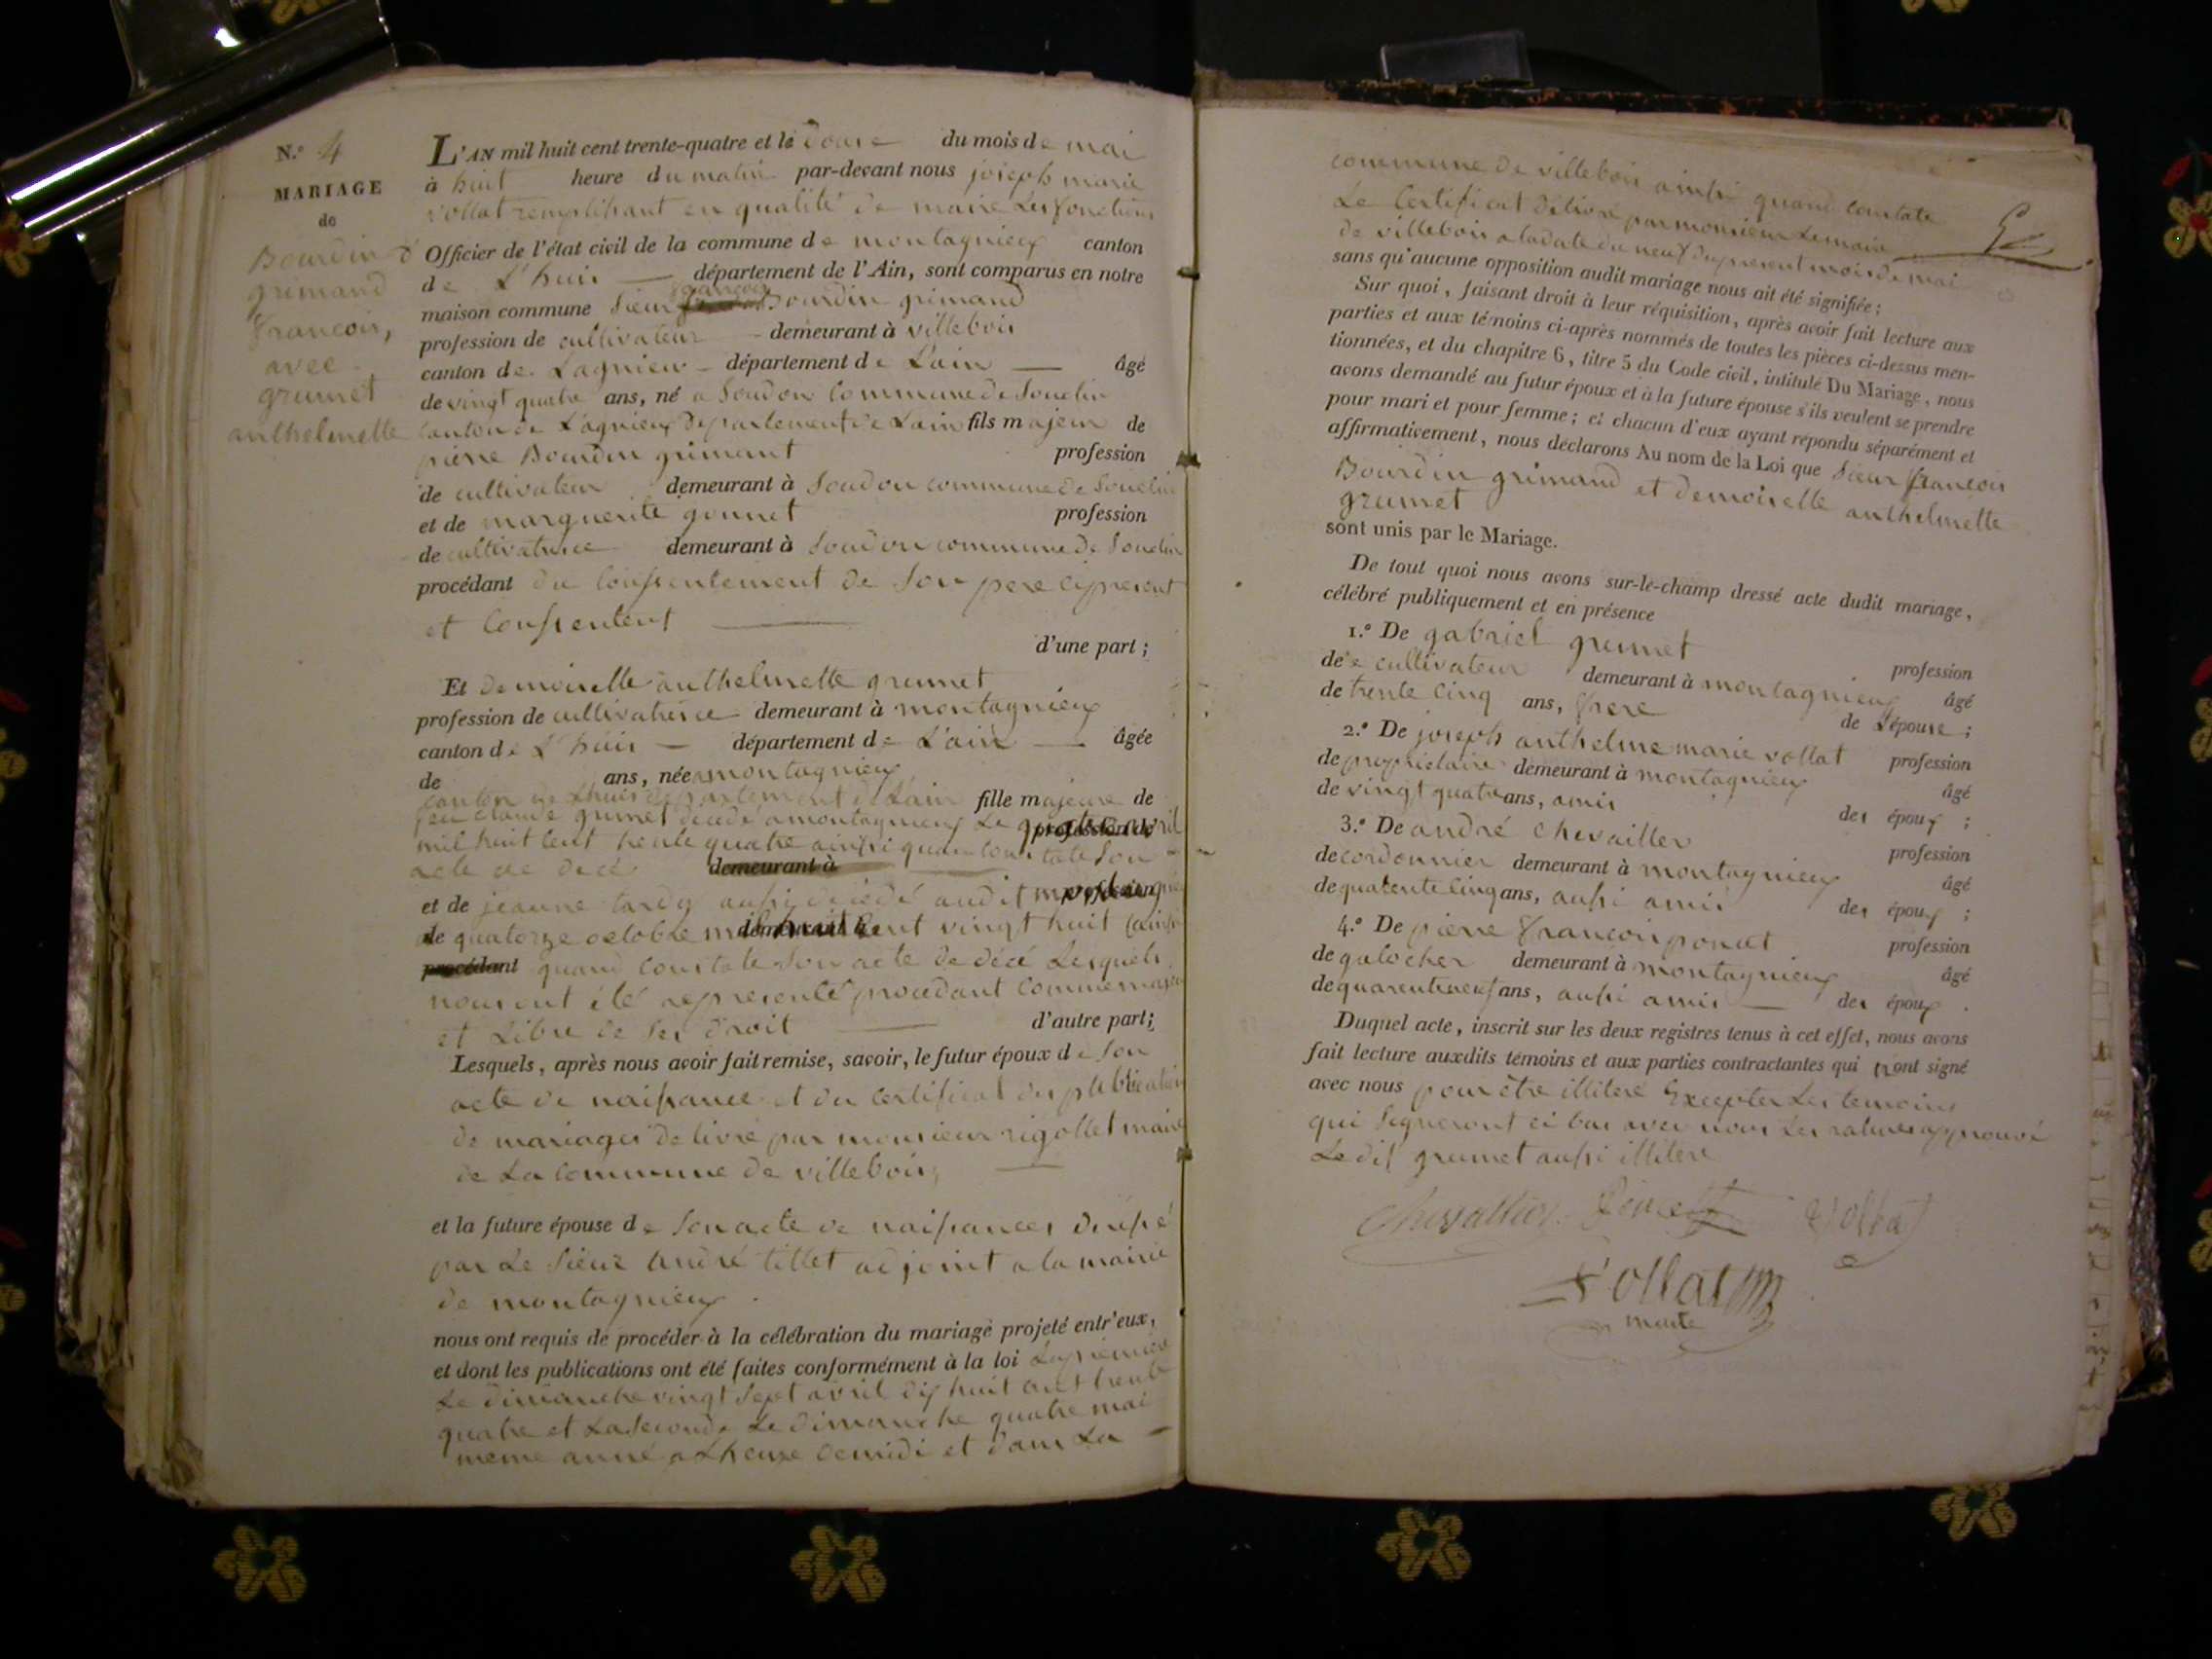 N.º 4
MARIAGE
de
Bourdin
grimand
francois,
avec
grumet
anthelmette
L'AN mil huit cent trente-quatre et le douse du mois de mai
à huit heure du matin par-devant nous joseph marie
vollat remplissant en qualité de maire Les fonctions
d'Officier de l'état civil de la commune de montagnieux canton
de L'huis département de l'Ain, sont comparus en notre
maison commune sieur francois Bourdin grimand
profession de cultivateur demeurant à villebois
canton de Lagnieu département de L'ain âgé
de vingt quatre ans, né a Soudon commune de Souclin
canton de Lagnieux Departement de Lain fils majeur de
pierre Bourdin grimant profession
de cultivateur demeurant à Soudon commune de Souclin
et de marguerite gonnet profession
de cultivatrice demeurant à Soudon commune de Souclin
procédant du Consentement de Son pere cipresent
et Consentent
d'une part ;
Et Demoiselle anthelmette grumet
profession de cultivatrice demeurant à montagnieux
canton de L'huis département de L'ain âgée
de ans, née a montagnieux
canton de Lhuis departement de Lain fille majeure de
feu claude grumet décédé a montagnieux Le profession de avril
mil huit cent trente quatre ainssi quan constate Son
acte de décé demeurant à
et de jeanne tardy aussi décédé audit profession
le quatorze octobre mil huit cent vingt huit ainssi
procédant quand constate Son acte de décé Lesquels
nous ont été representé procedant comme majeur
et Libre de Ses droit d'autre part;
Lesquels, après nous avoir fait remise, savoir, le futur époux de Son
acte de naissance et du certificat des publication
de mariages délivré par monsieur rigollet maire
de La commune de villebois,
et la future épouse de Son acte de naissances
par Le Sieur andré tillet adjoint a la mairie
de montagnieux.
nous ont requis de procéder à la célébration du mariage projeté entr'eux,
et dont les publications ont été faites conformément à la loi La premiere
Le dimanche vingt Sept avril dix huit cent trente
quatre et La Seconde Le Dimanche quatre mai
meme anné a Lheure de midi et dans La
commune de villebois ainssi quand constate
Le Certificat délivré par monsieur Lemaire
de villebois a la date du neuf du present mois de mai
sans qu'aucune opposition audit mariage nous ait été signifiée ;
Sur quoi, faisant droit à leur réquisition, après avoir fait lecture aux
parties et aux témoins ci-après nommés de toutes les pièces ci-dessus men-
tionnées, et du chapitre 6, titre 5 du Code civil, intitulé Du Mariage, nous
avons demandé au futur époux et à la future épouse s'ils veulent se prendre
pour mari et pour femme ; et chacun d'eux ayant répondu séparément et
affirmativement, nous déclarons Au nom de la Loi que Sieur francois
Bourdin grimand et Demoiselle anthelmette
grumet
sont unis par le Mariage.
De tout quoi nous avons sur-le-champ dressé acte dudit mariage,
célébré publiquement et en présence
1.º De gabriel grumet profession
de cultivateur demeurant à montagnieux âgé
de trente cinq ans, frere de L'épouse ;
2.º De joseph anthelme marie vollat profession
de proprietaire demeurant à montagnieux âgé
de vingt quatre ans, amis des époux ;
3.º De andré chevailler profession
de cordonnier demeurant à montagnieux âgé
de quarente cinq ans, aussi amis des époux ;
4.º De pierre francois poncet profession
de galocher demeurant à montagnieux âgé
de quarente neuf ans, aussi amis des époux.
Duquel acte, inscrit sur les deux registres tenus à cet effet, nous avons
fait lecture auxdits témoins et aux parties contractantes qui n'ont signé
avec nous pour être illiteré Excepter Les temoins
qui Signeront ci bas avec nous Les ratures approuvé
Le dit grumet aussi illiteré
Chevallier Vollat
Vollat
maire